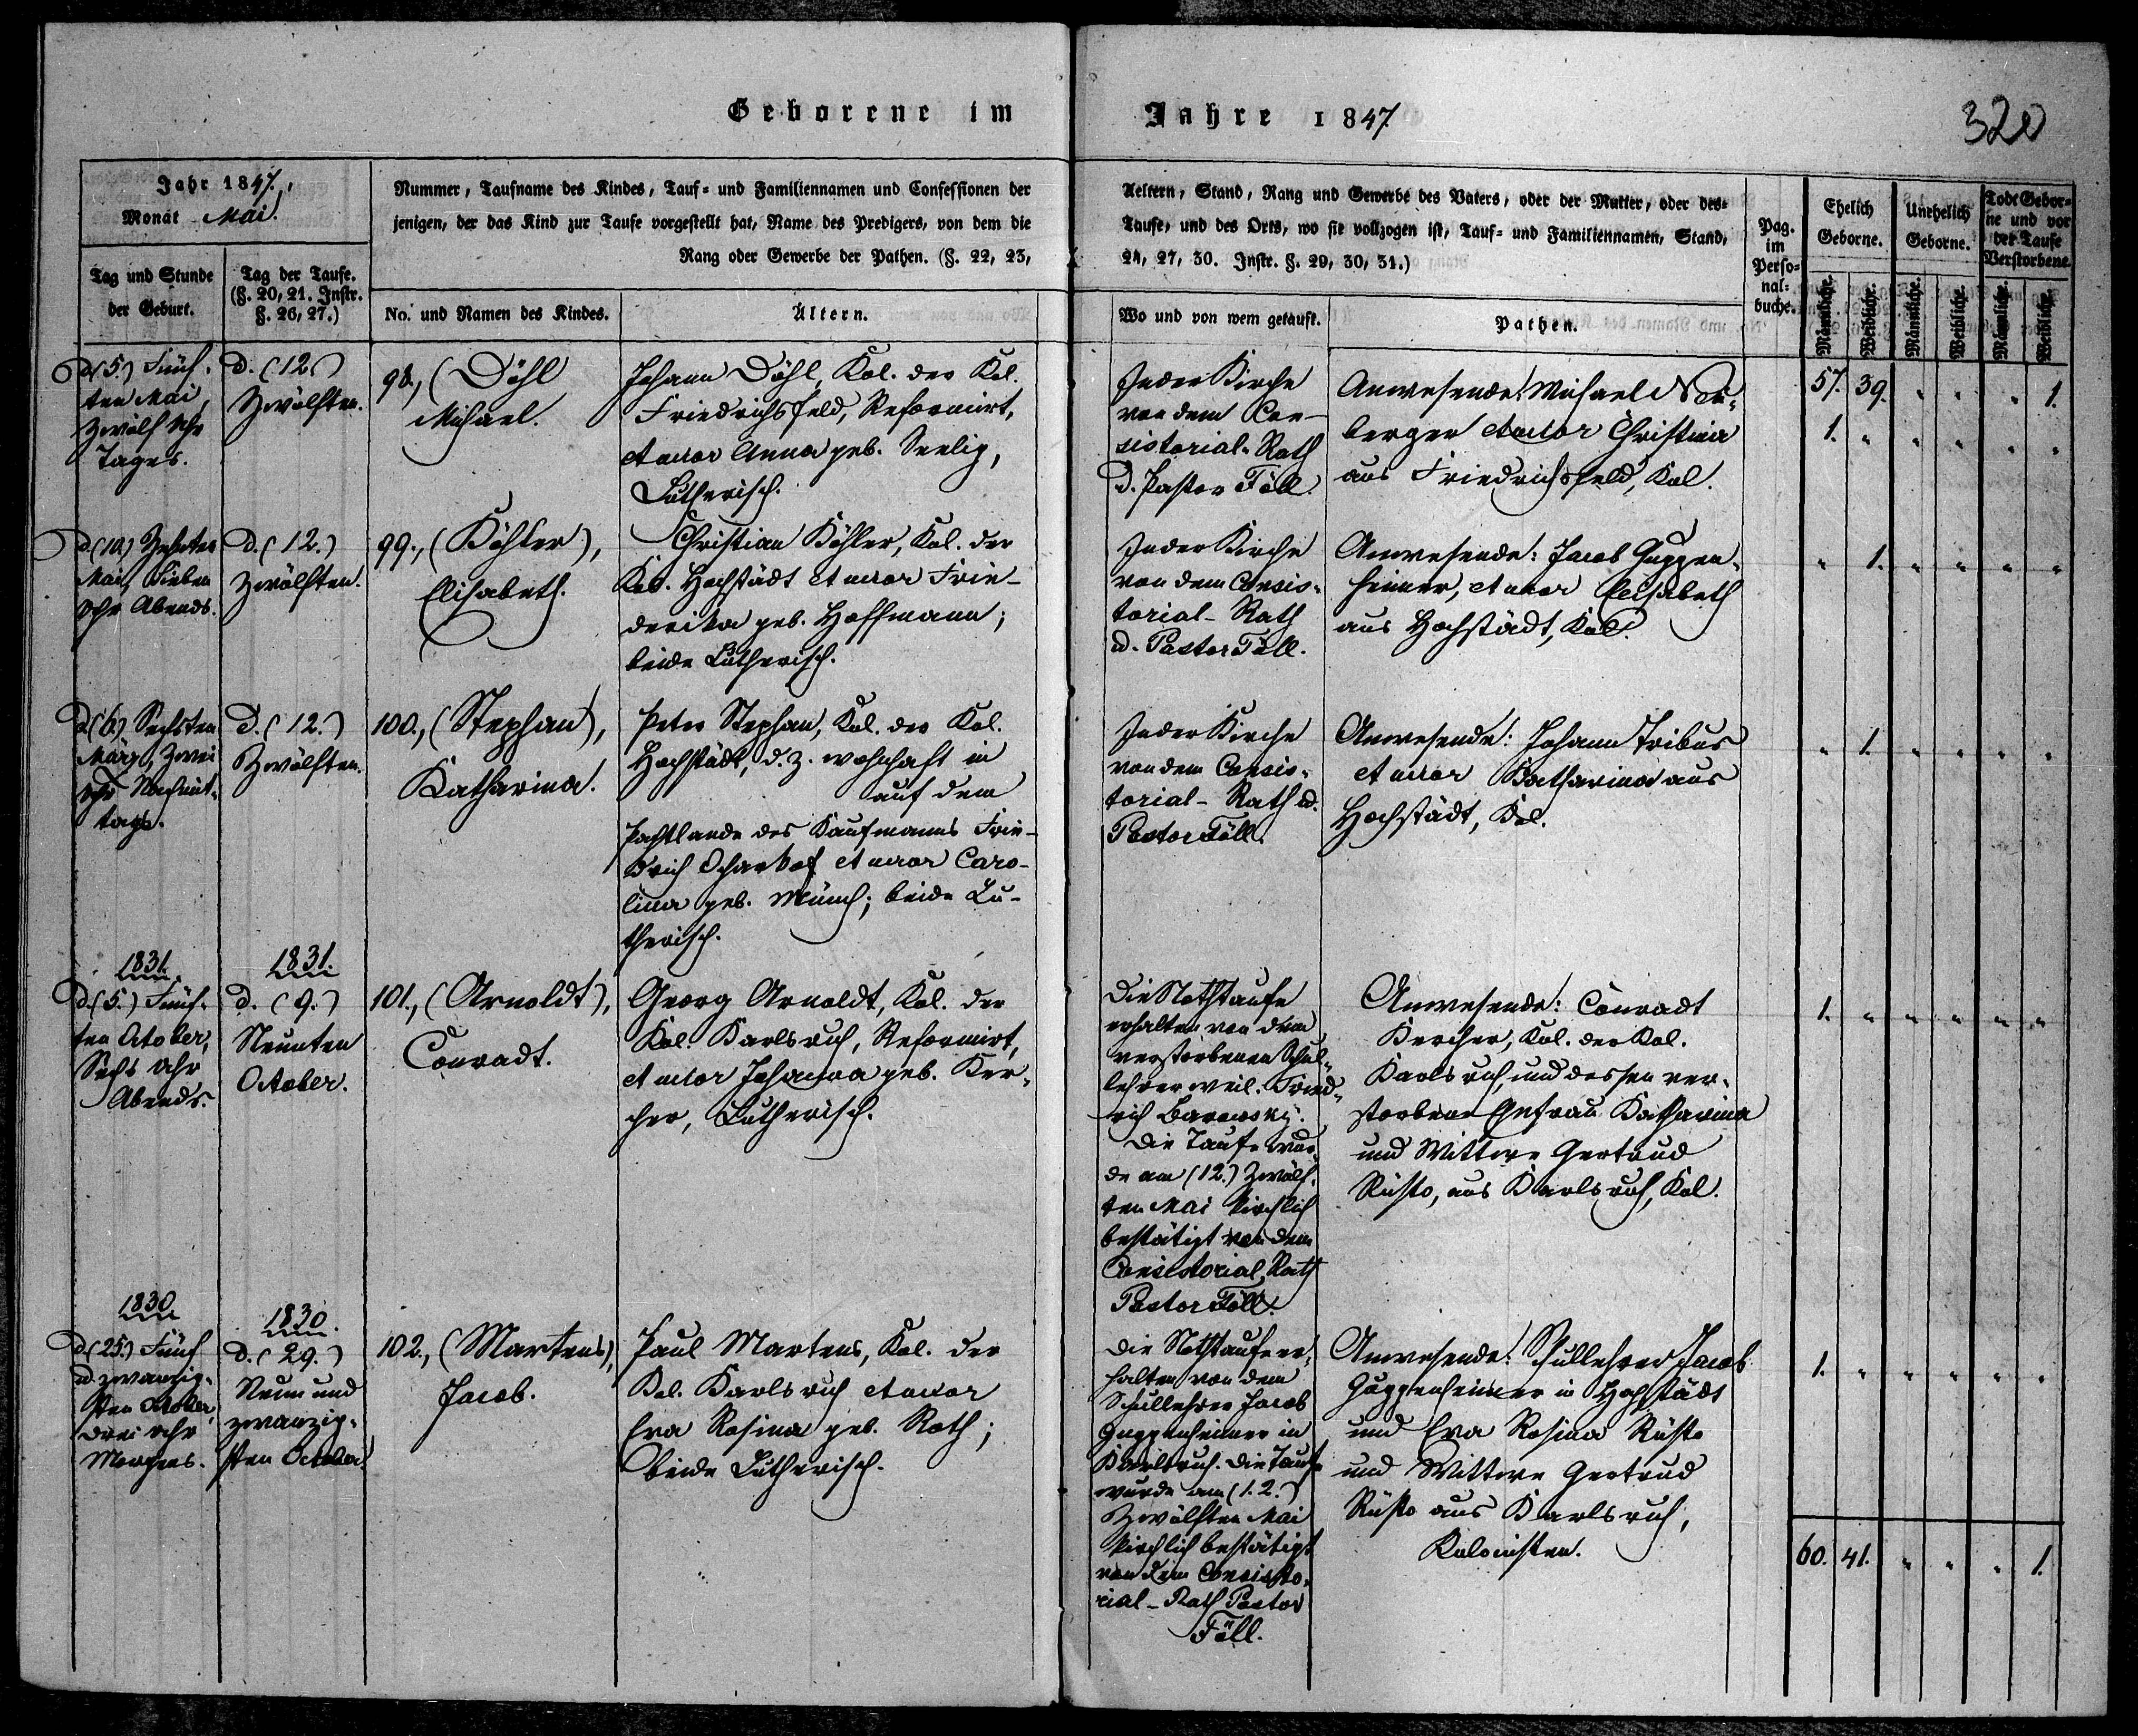 Geborene im Jahre 1847.
320
Jahr 1847.
Monat Mai.
Nummer, Taufname des Kindes, Tauf- und Familiennamen und Confessionen der
jenigen, der das Kind zur Taufe vorgestellt hat, Name des Predigers, von dem die
Rang oder Gewerbe der Pathen. (§. 22, 23,
Aeltern, Stand, Rang und Gewerbe des Vaters, oder der Mutter, oder des-
Taufe, und des Orts, wo sie vollzogen ist, Tauf- und Familiennamen, Stand,
24, 27, 30. Instr. §. 29, 30, 31.)
Pag.
im
Perso-
nal-
buche.
Ehelich
Geborne.
Unehelich
Geborne.
Todt Gebor-
ne und vor
der Taufe
Verstorbene.
Tag und Stunde
der Geburt.
Tag der Taufe.
(§. 20, 21. Instr.
§. 26, 27.)
No. und Namen des Kindes.
Ältern.
Wo und von wem getauft.
Pathen.
Männliche.
Weibliche.
Männliche.
Weibliche.
Männliche.
Weibliche.
d. (5.) Fünf-
ten Mai,
zwölf Uhr
Tages.
d. (12.)
Zwölften.
98., (Döhl
Michael.
Johann Döhl, Kol. der Kol.
Friedrichsfeld, Reformirt,
et uxor Anna geb. Seelig,
Lutherisch.
In der Kirche
von dem Con-
sistorial-Rath
d. Pastor Föll.
Anwesende: Michael
berger et uxor Christina
aus Friedrichsfeld, Kol.
57. 39. " " " 1.
1. " " " " "
d. (10.) Zehnten
Mai, Sieben
Uhr Abends.
d. (12.)
Zwölften.
99., (Köhler),
Elisabeth.
Christian Köhler, Kol. der
Kol. Hochstädt et uxor Frie-
derika geb. Hoffmann;
beide Lutherisch.
In der Kirche
von dem Consis-
torial-Rath
d. Pastor Föll.
Anwesende: Jacob Guggen-
heimer, et uxor Elisabeth
aus Hochstädt, Kol.
" 1. " " " "
d. (6.) Sechsten
März, zwei
Uhr Nachmit-
tags.
d. (12.)
Zwölften.
100., (Stephan),
Katharina.
Peter Stephan, Kol. der Kol.
Hochstädt, d. z. wohnhaft in
auf dem
Pachtlande des Kaufmanns Frie-
drich et uxor Caro-
lina geb. Münch; beide Lu-
therisch.
In der Kirche
von dem Consis-
torial-Rath d.
Pastor Föll.
Anwesende: Johann Tribus
et uxor Katharina aus
Hochstädt, Kol.
" 1. " " " "
1831.
d. (5.) Fünf-
ten October,
Sechs Uhr
Abends.
1831.
d. (9.)
Neunten
October.
101., (Arnoldt),
Conradt.
Georg Arnoldt, Kol. der
Kol. Karlsruh, Reformirt,
et uxor Johanna geb. Ker-
cher, Lutherisch.
Die Nothtaufe
erhalten von dem
verstorbenen Schul-
lehrer weil. Fried-
rich Barowsky.
Die Taufe wur-
de am (12.) Zwölf-
ten Mai kirchlich
bestätigt von dem
Consistorial-Rath
Pastor Föll.
Anwesende: Conradt
Kercher, Kol. der Kol.
Karlsruh, und dessen ver-
storbene Ehefrau Katharina
und Wittwe Gertrud
aus Karlsruh, Kol.
1. " " " " "
1830.
d. (25.) Fünf
u. zwanzig-
sten October,
drei Uhr
Morgens.
1830.
d. (29.)
Neun und
zwanzig-
sten October.
102., (Martens),
Jacob.
Paul Martens, Kol. der
Kol. Karlsruh et uxor
Eva Rosina geb. Roth;
beide Lutherisch.
Die Nothtaufe er-
halten von dem
Schullehrer Jacob
Guggenheimer in
Karlsruh. Die Taufe
wurde am (12.)
Zwölften Mai
kirchlich bestätigt
von dem Consisto-
rial-Rath Pastor
Föll.
Anwesende: Schullehrer Jacob
Guggenheimer in Hochstädt
und Eva Rosina
und Wittwe Gertrud
aus Karlsruh,
Kolonisten.
1. " " " " "
60. 41. " " " 1.